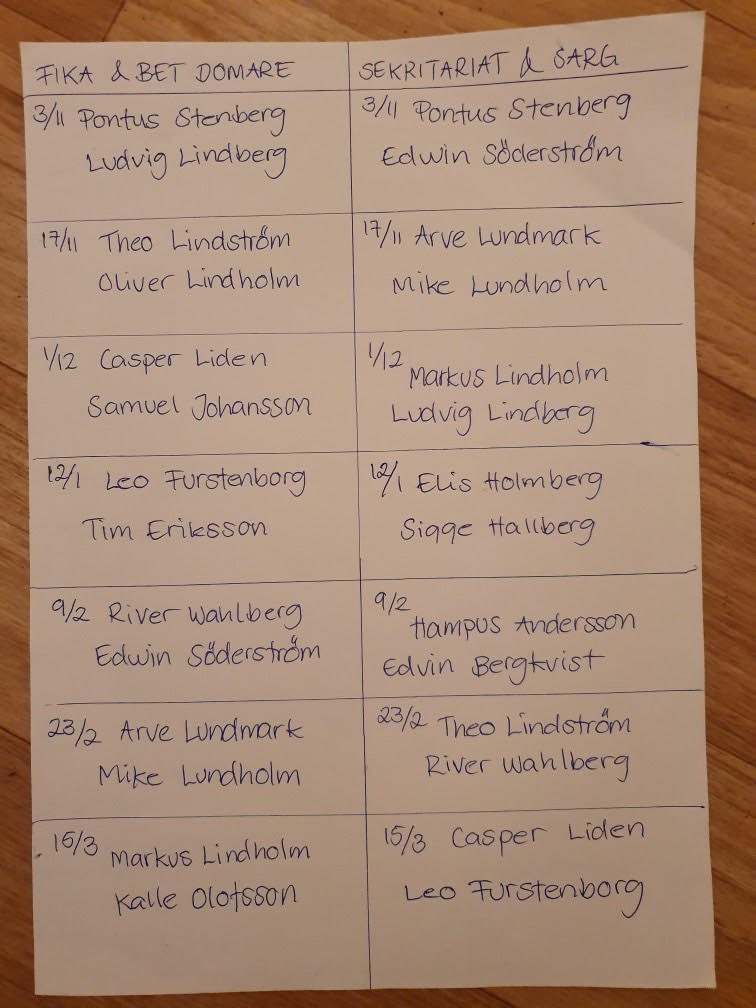 FIKA & BET DOMARE
3/11 Pontus Stenberg
Ludvig Lindberg
17/11 Theo Lindström
Oliver Lindholm
1/12 Casper Liden
Samuel Johansson
12/1 Leo Furstenborg
Tim Eriksson
9/2 River Wahlberg
Edwin Söderström
23/2 Arve Lundmark
Mike Lundholm
15/3 Markus Lindholm
Kalle Olofsson
SEKRITARIAT & SARG
3/11 Pontus Stenberg
Edwin Söderström
17/11 Arve Lundmark
Mike Lundholm
1/12 Markus Lindholm
Ludvig Lindberg
12/1 Elis Holmberg
Sigge Hallberg
9/2 Hampus Andersson
Edvin Bergkvist
23/2 Theo Lindström
River Wahlberg
15/3 Casper Liden
Leo Furstenborg